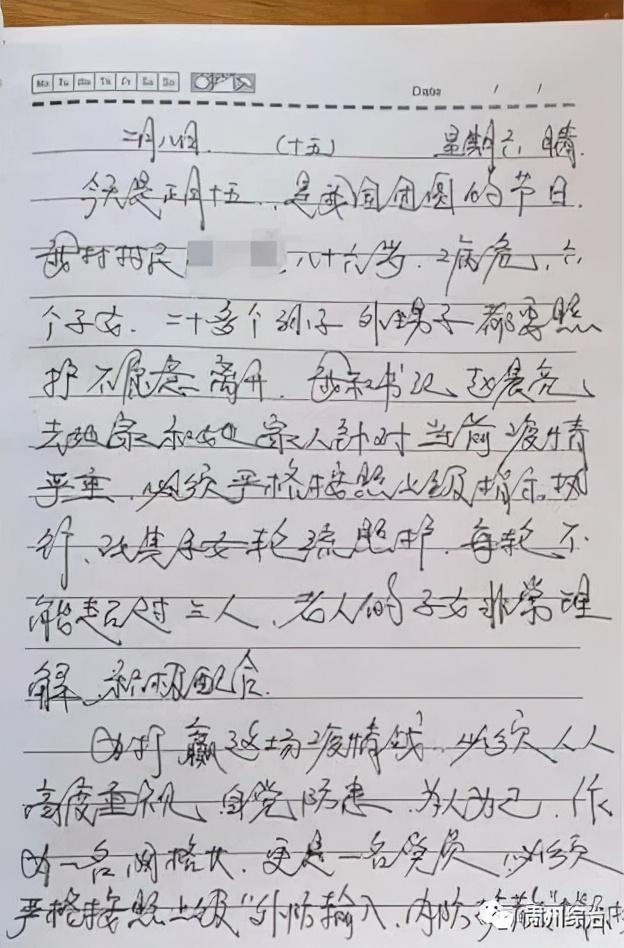 Mo Tu We Th Fr Sa Su
Date / /
二月八日. (十五) 星期六 晴.
今天是正月十五, 是我国团圆的节日.
我村村民 , 八十六岁, 病危, 六
个子女. 二十多个孙子 外甥子 都要照
护 不愿意离开. 我和书记 赵晨亮,
去她家和她家人针对当前疫情
严重, 必须严格按照上级指示执
行, 改其子女轮流照护, 每轮不
能超过三人, 老人的子女非常理
解 积极配合.
为打赢这场疫情战, 必须人人
高度重视, 自觉防患, 为人为己, 作
为一名网格长, 更是一名党员, 必须
严格按照上级"外防输入, 内防
禹州综治